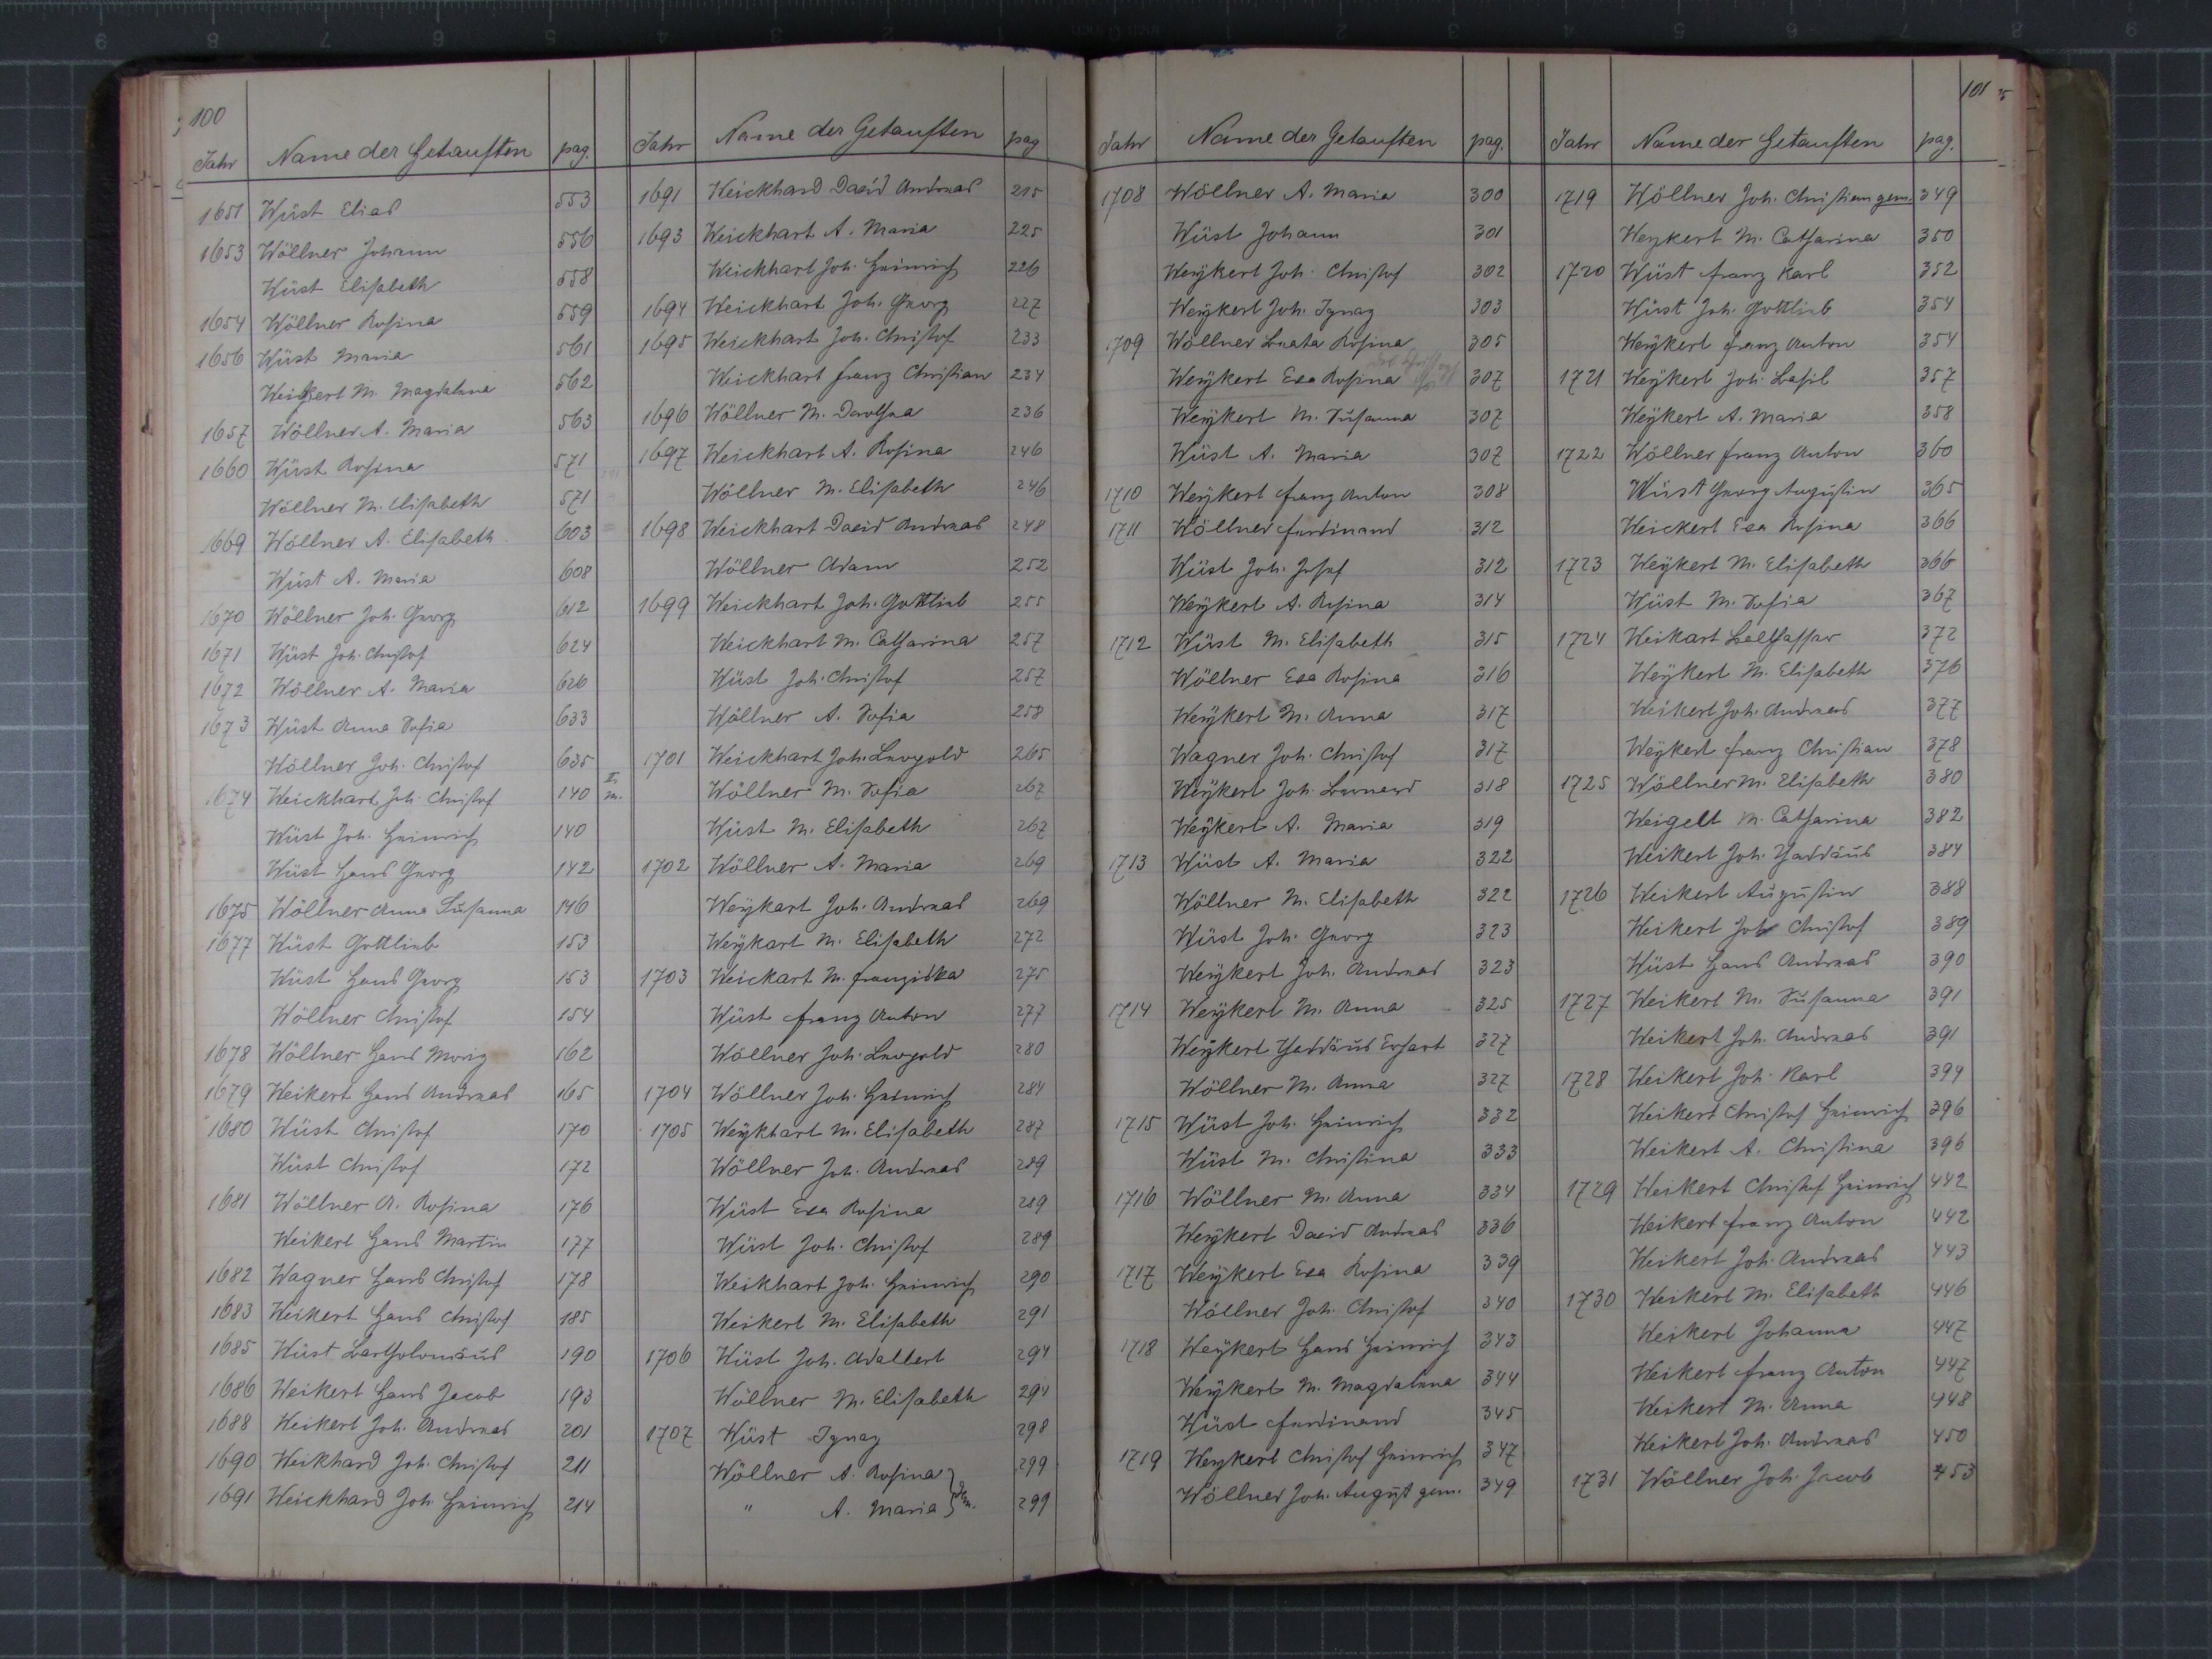 100
Jahr Name der Getauften pag.
1651 Wüst Elias 553
1653 Wöllner Johann 556
Wüst Elisabeth 558
1654 Wöllner Rosina 559
1656 Wüst Maria 561
Weikert M. Magdalena 562
1657 Wöllner A. Maria 563
1660 Wüst Rosina 571
Wöllner M. Elisabeth 571
1669 Wöllner A. Elisabeth 603
Wüst A. Maria 608
1670 Wöllner Joh. Georg 612
1671 Wüst Joh. Christof 624
1672 Wöllner A. Maria 626
1673 Wüst Anna Sofia 633
Wöllner Joh. Christof 635
1674 Weickhart Joh. Christof 140 II. m.
Wüst Joh. Heinrich 140
Wüst Hans Georg 142
1675 Wöllner Anna Susanna 146
1677 Wüst Gottlieb 153
Wüst Hans Georg 153
Wöllner Christof 154
1678 Wöllner Hans Moriz 162
1679 Weikert Hans Andreas 165
1680 Wüst Christof 170
Wüst Christof 172
1681 Wöllner A. Rosina 176
Weikert Hans Martin 177
1682 Wagner Hans Christof 178
1683 Weikert Hans Christof 185
1685 Wüst Bartholomäus 190
1686 Weikert Hans Jacob 193
1688 Weikert Joh. Andreas 201
1690 Weikhard Joh. Christof 211
1691 Weickhard Joh. Heinrich 214
Jahr Name der Getauften pag
1691 Weickhard David Andreas 215
1693 Weickhart A. Maria 225
Weickhart Joh. Heinrich 226
1694 Weickhart Joh. Georg 227
1695 Weickhart Joh. Christof 233
Weickhart Franz Christian 234
1696 Wöllner M. Dorothea 236
1697 Weickhart A. Rosina 246
Wöllner M. Elisabeth 246
1698 Weickhart David Andreas 248
Wöllner Adam 252
1699 Weickhart Joh. Gottlieb 255
Weickhart M. Catharina 257
Wüst Joh. Christof 257
Wöllner A. Sofia 258
1701 Weickhart Joh. Leopold 265
Wöllner M. Sofia 267
Wüst M. Elisabeth 267
1702 Wöllner A. Maria 269
Weykart Joh. Andreas 269
Weykart M. Elisabeth 272
1703 Weickart M. Franziska 275
Wüst Franz Anton 277
Wöllner Joh. Leopold 280
1704 Wöllner Joh. Heinrich 284
1705 Weykhart M. Elisabeth 287
Wöllner Joh. Andreas 289
Wüst Eva Rosina 289
Wüst Joh. Christof 289
Weikhart Joh. Heinrich 290
Weikert M. Elisabeth 291
1706 Wüst Joh. Adalbert 294
Wöllner M. Elisabeth 294
1707 Wüst Ignaz 298
Wöllner A. Rosina } gem. 299
" A. Maria 299
Jahr Name der Getauften pag.
1708 Wöllner A. Maria 300
Wüst Johann 301
Weykert Joh. Christof 302
Weykert Joh. Ignaz 303
1709 Wöllner Beata Rosina 305
Weykert Eva Rosina 307
Weykert M. Susanna 307
Wüst A. Maria 307
1710 Weykert Franz Anton 308
1711 Wöllner Ferdinand 312
Wüst Joh. Josef 312
Weykert A. Rosina 314
1712 Wüst M. Elisabeth 315
Wöllner Eva Rosina 316
Weykert M. Anna 317
Wagner Joh. Christof 317
Weykert Joh. Bernard 318
Weykert A. Maria 319
1713 Wüst A. Maria 322
Wöllner M. Elisabeth 322
Wüst Joh. Georg 323
Weykert Joh. Andreas 323
1714 Weykert M. Anna 325
Weykert Thaddäus Erhart 327
Wöllner M. Anna 327
1715 Wüst Joh. Heinrich 332
Wüst M. Christina 333
1716 Wöllner M. Anna 334
Weykert David Andreas 336
1717 Weykert Eva Rosina 339
Wöllner Joh. Christof 340
1718 Weykert Hans Heinrich 343
Weykert M. Magdalena 344
Wüst Ferdinand 345
1719 Weykert Christof Heinrich 347
Wöllner Joh. August gem. 349
101
Jahr Name der Getauften pag.
1719 Wöllner Joh. Christian gem. 349
Weykert M. Catharina 350
1720 Wüst Franz Karl 352
Wüst Joh. Gottlieb 354
Weykert Franz Anton 354
1721 Weykert Joh. Basil 357
Weykert A. Maria 358
1722 Wöllner Franz Anton 360
Wüst Georg Augustin 365
Weickert Eva Rosina 366
1723 Weykert M. Elisabeth 366
Wüst M. Sofia 367
1724 Weikart Balthassar 372
Weykert M. Elisabeth 376
Weikert Joh. Andreas 377
Weykert Franz Christian 378
1725 Wöllner M. Elisabeth 380
Weigelt M. Catharina 382
Weikert Joh. Thaddäus 384
1726 Weikert Augustin 388
Weikert Joh Christof 389
Wüst Hans Andreas 390
1727 Weikert M. Susanna 391
Weikert Joh. Andreas 391
1728 Weikert Joh. Karl 394
Weikert Christof Heinrich 396
Weikert A. Christina 396
1729 Weikert Christof Heinrich 442
Weikert Franz Anton 442
Weikert Joh. Andreas 443
1730 Weikert M. Elisabeth 446
Weikert Johanna 447
Weikert Franz Anton 447
Weikert M. Anna 448
Weikert Joh. Andreas 450
1731 Wöllner Joh. Jacob 453